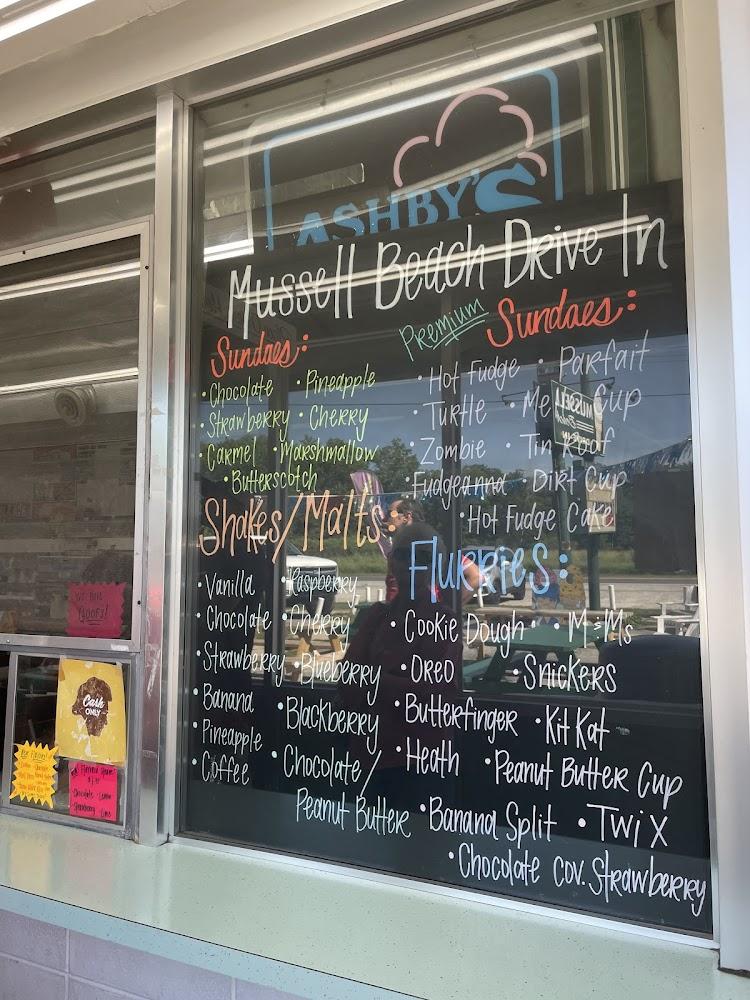 ASHBY'S
Mussell Beach Drive In
Sundaes:
• Chocolate • Pineapple
• Strawberry • Cherry
• Carmel • Marshmallow
• Butterscotch
Premium Sundaes:
• Hot Fudge • Parfait
• Turtle • Me Cup
• Zombie • Tin Roof
• Fudgeanna • Dirt Cup
• Hot Fudge Cake
Shakes/Malts:
• Vanilla • Raspberry
• Chocolate • Cherry
• Strawberry • Blueberry
• Banana • Blackberry
• Pineapple • Chocolate/
• Coffee Peanut Butter
Flurries:
• Cookie Dough • M&Ms
• Oreo • Snickers
• Butterfinger • Kit Kat
• Heath • Peanut Butter Cup
• Banana Split • Twix
• Chocolate cov. Strawberry
Cash
ONLY